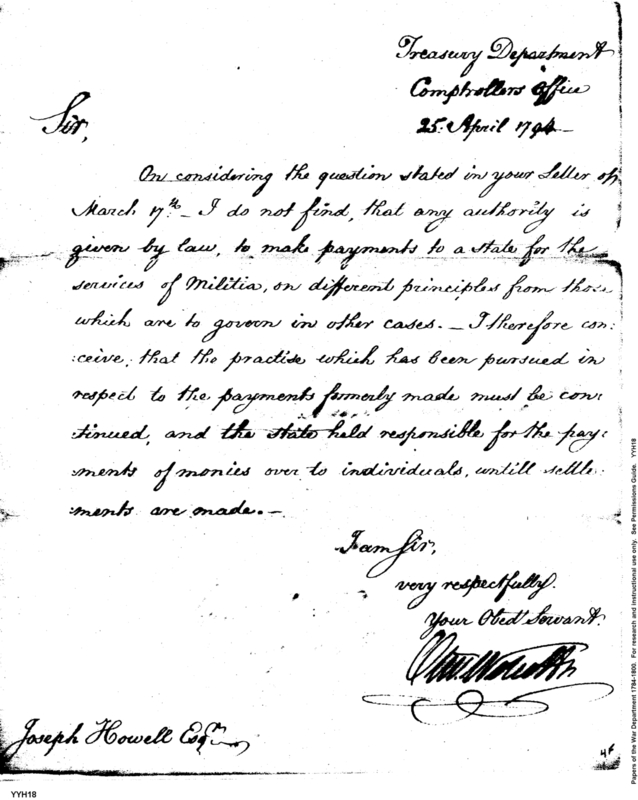 Treasury Department
Comptrollers Office
25. April 1794 —
Sir,
On considering the question stated in your Letter of
March 17th. – I do not find, that any authority is
given by law, to make payments to a state for the
services of Militia, on different principles from those
which are to govern in other cases. – I therefore con:
:ceive, that the practise which has been pursued in
respect to the payments formerly made must be con:
tinued, and the state held responsible for the pay:
:ments of monies over to individuals, untill settle:
:ments are made. –
I am Sir,
very respectfully.
Your Obed Servant.
Oliv. Wolcott Jr
Joseph Howell Esqr.
YYH18
Papers of the War Department 1784-1800. For research and instructional use only. See Permissions Guide. YYH18